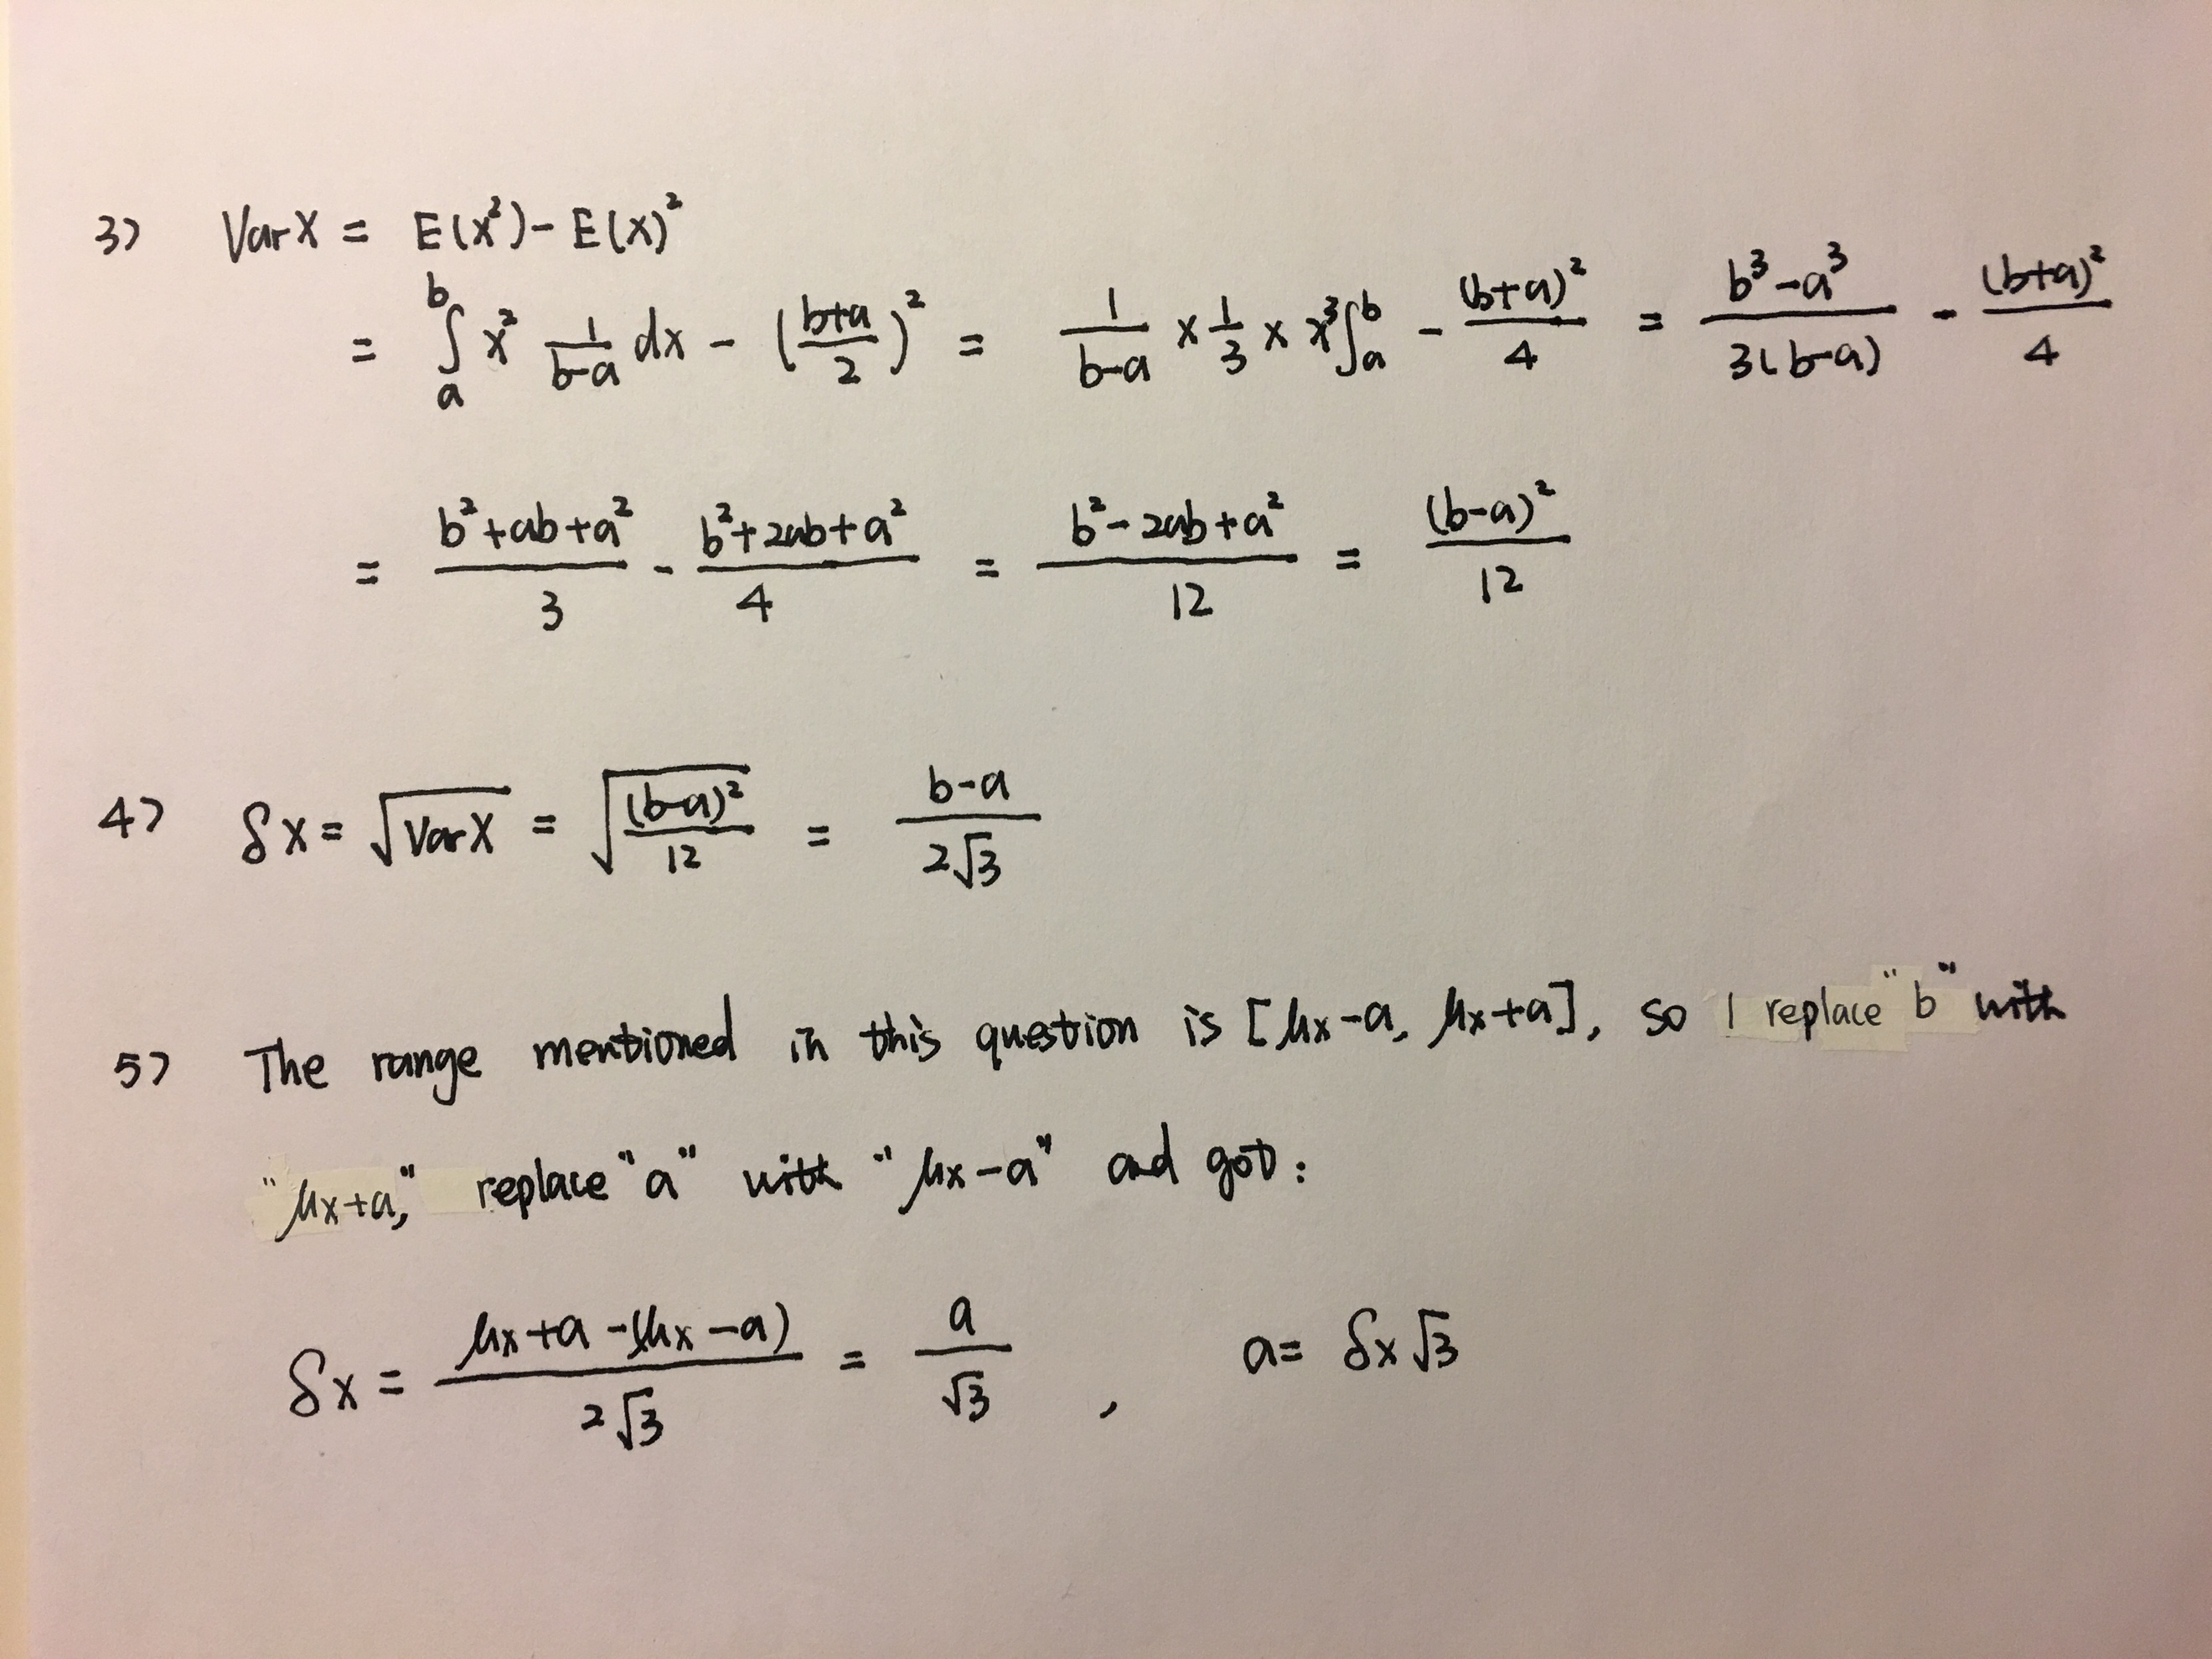 3) Var X = E(x²) - E(x)²
= ∫ₐᵇ x² 1/(b-a) dx - ((b+a)/2)² = 1/(b-a) × 1/3 × x³∫ₐᵇ - (b+a)²/4 = (b³-a³)/(3(b-a)) - (b+a)²/4
= (b²+ab+a²)/3 - (b²+2ab+a²)/4 = (b²-2ab+a²)/12 = (b-a)²/12
4) δx = √(Var X) = √((b-a)²/12) = (b-a)/(2√3)
5) The range mentioned in this question is [μx-a, μx+a], so I replace "b" with
"μx+a," replace "a" with "μx-a" and got:
δx = (μx+a-(μx-a))/(2√3) = a/√3 , a= δx√3